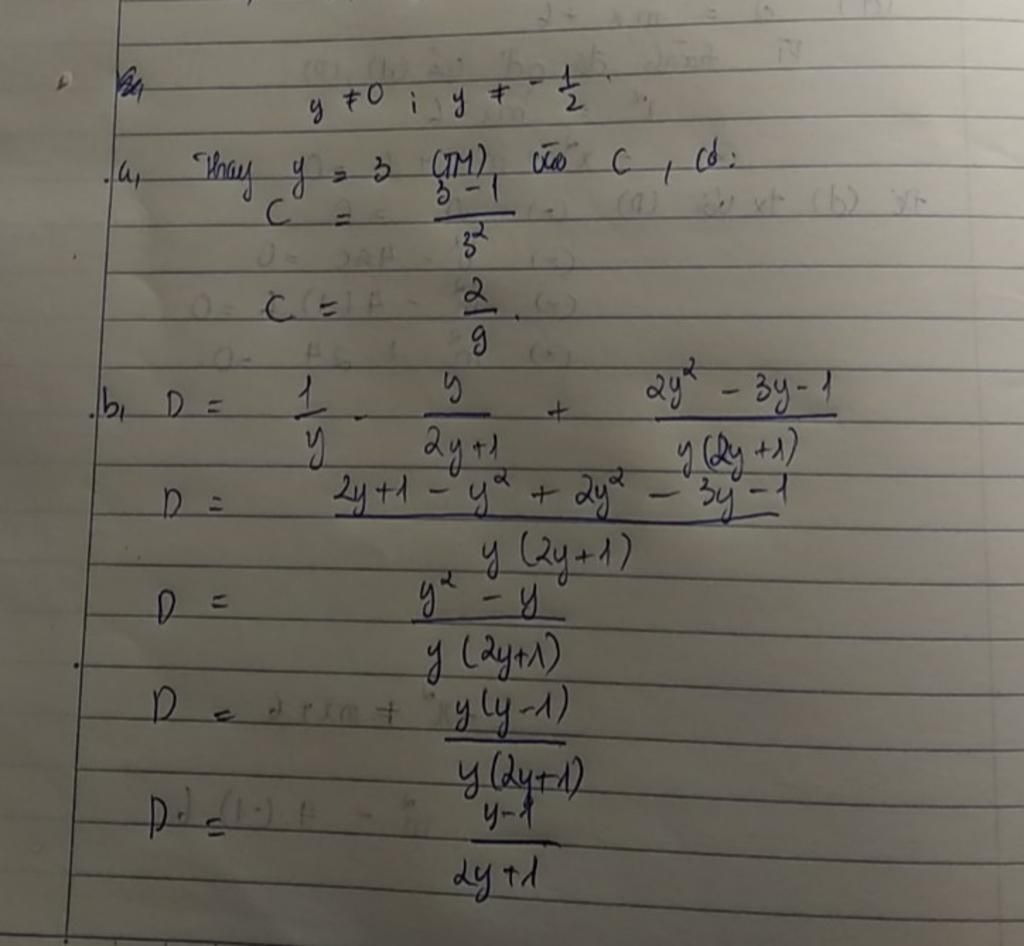 y ≠ 0 ; y ≠ - 1/2
a, Thay y = 3 (TM) vào C, có:
C = (3 - 1)/3²
C = 2/9.
b, D = 1/y - y/(2y+1) + (2y² - 3y - 1)/(y(2y+1))
D = (2y+1 - y² + 2y² - 3y - 1)/(y(2y+1))
D = (y² - y)/(y(2y+1))
D = y(y-1)/(y(2y+1))
D = (y-1)/(2y+1)